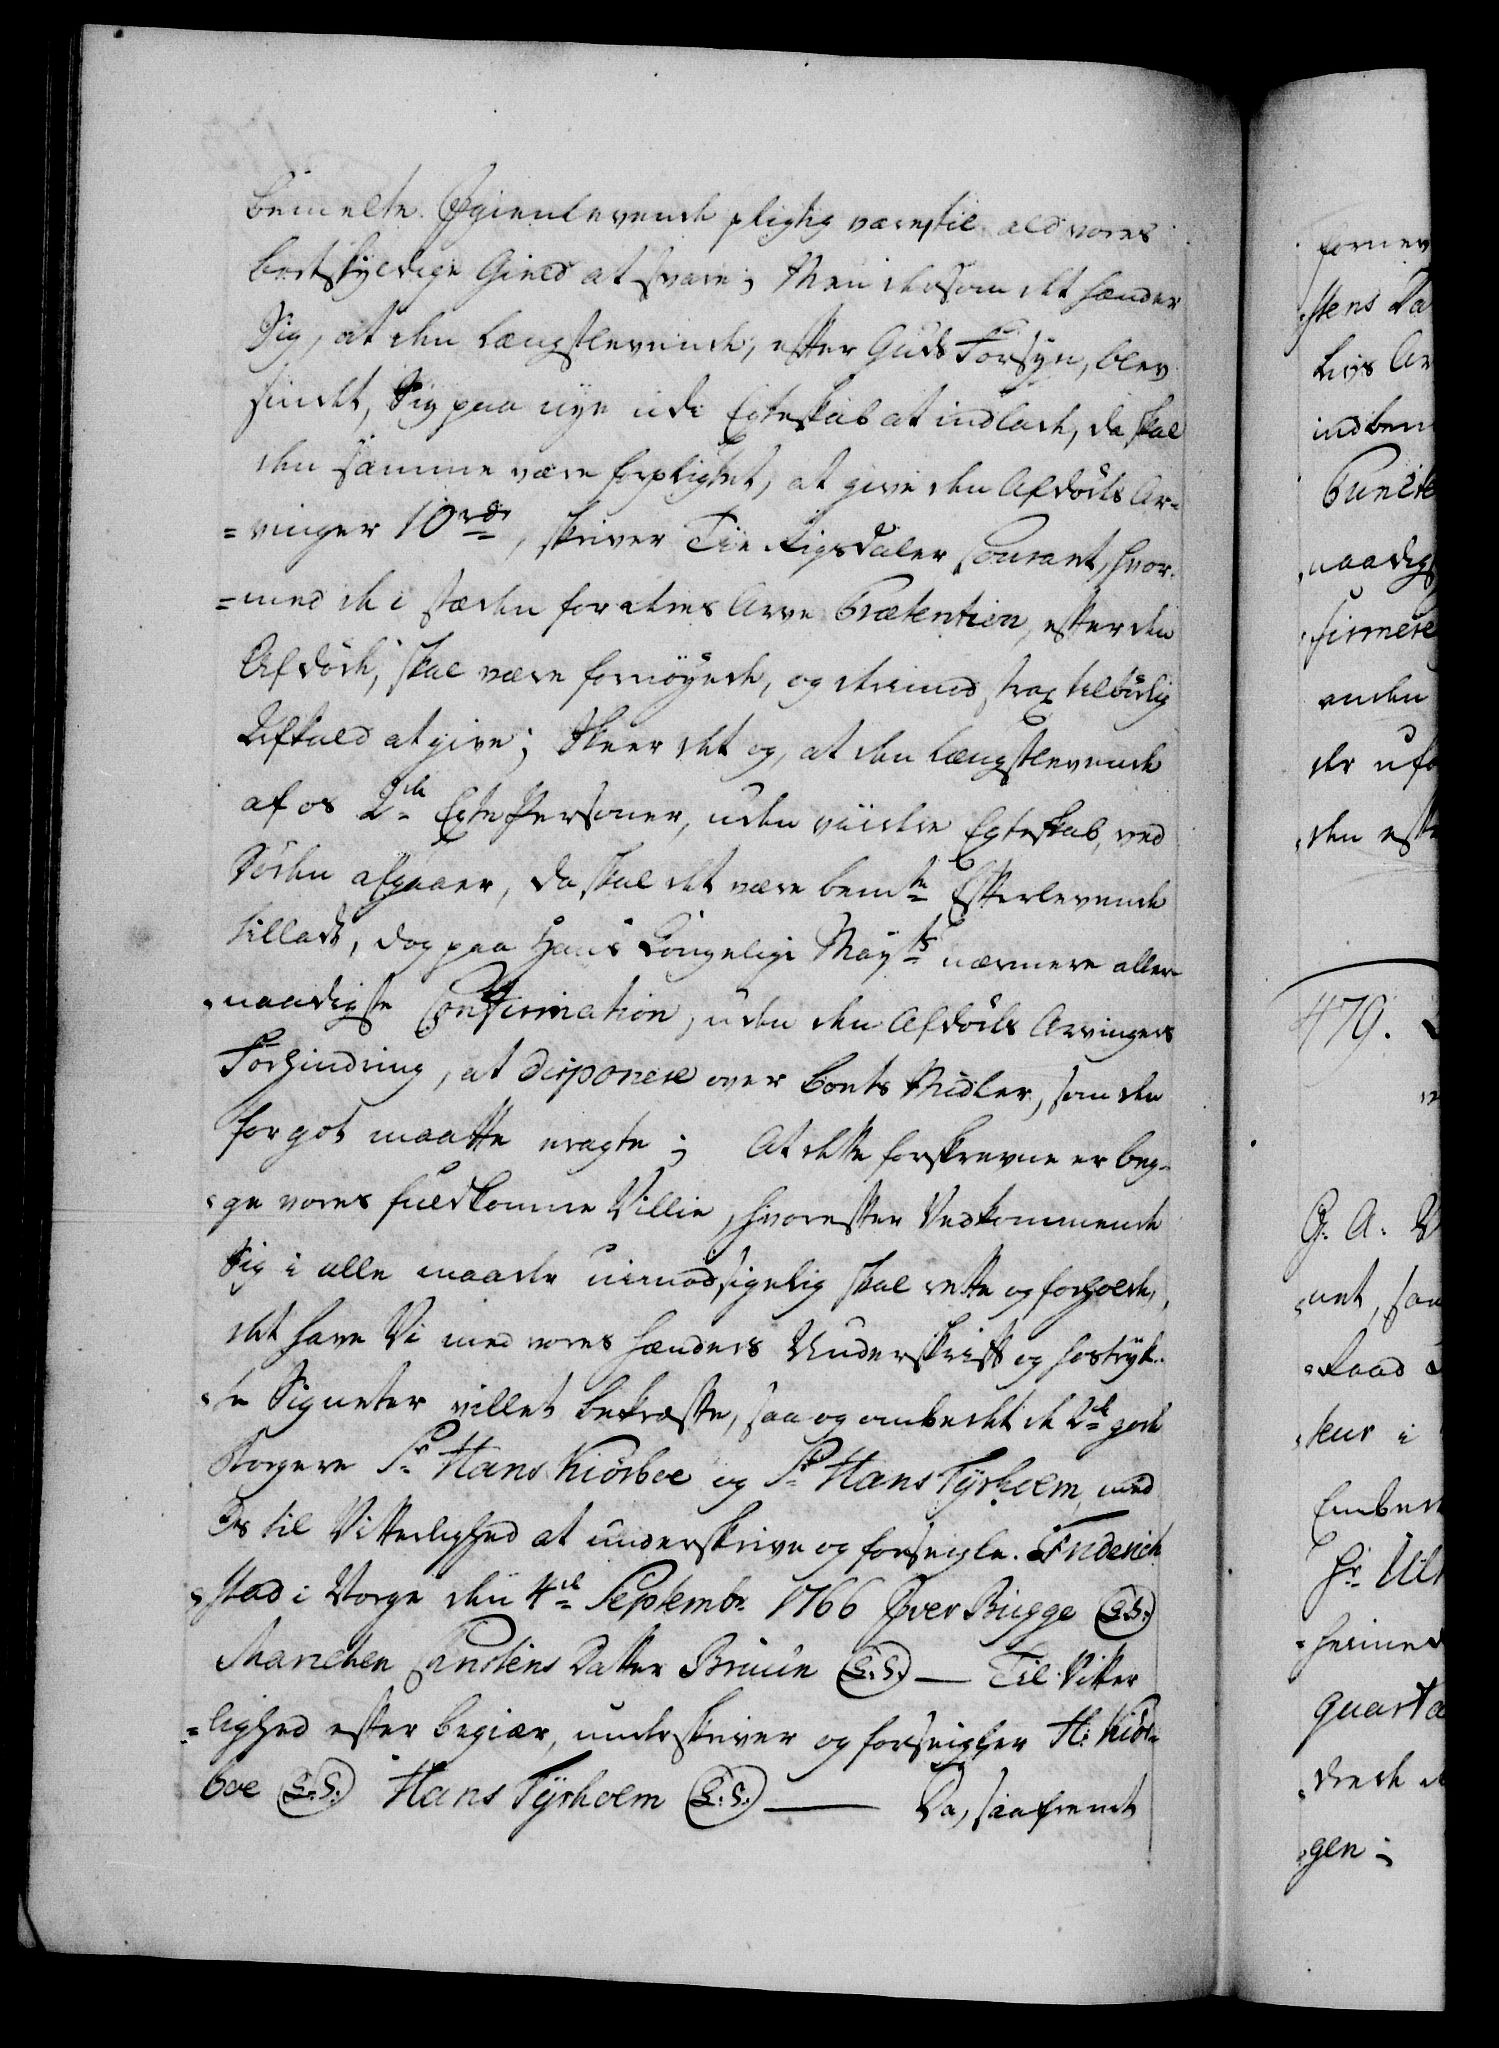 bemelte Igienlevende pligtig være, til ald vores
bortskyldige Gield at svare; Men dersom det hænder
Sig, at den Længstlevende, efter Guds Forsyn, blev
sindet, Sig paa nye udi Egteskab at indlade, da skal
den samme være forpligtet, at give den Afdöds Ar-
=vinger 10 rdr, skriver Tie Rigsdaler Courant, hvor-
=med de i stæden for deres Arve Prætention, efter den
Afdöde, skal være fornøyede, og dermed strax tilbörlig
Afkald at give; Skeer det og, at den længstlevende
af os 2de EgtePersoner, uden viidere Egteskab, ved
Döden afgaaer, da skal det være bemte Efterlevende
tilladt, dog paa Hans Kongelige Mayts nærmere aller-
=naadigste Confirmation, uden den Afdöds Arvingers
Forhindring, at disponere over Boets Midler, som den
for got maatte eragte; At dette forskrevne er beg-
=ge vores fuldkomne Villie, hvorefter Vedkommende
Sig i alle maader uimodsigelig skal rette og forholde,
det have Vi med vores Hænders Underskrift og hostryk-
=te Signeter villet bekræfte, saa og ombedet de 2de gode
Borgere Sr Hans Kiörboe og Sr Hans Tyrholm, med
Os til Vitterlighed at underskrive og forseigle. Friderich
=stad i Norge den 4de Septembr 1766 Iver Bugge (L.S.)
Marichen Carstens Datter Bruun (L.S.) — Til Vitter
=lighed efter begiær, underskriver og forseigler H: Kiör-
boe (L.S.) Hans Tyrholm (L.S.) — Da, saafremt
fornev
stens Da
Livs Ar
indbem
Puncte
naadigs
firmere
anden
der ufo
den efte
479.
G. A. V
net, saa
Raad
teur i
Embed
Hr Ulr
hermed
quarta
drede
gen;